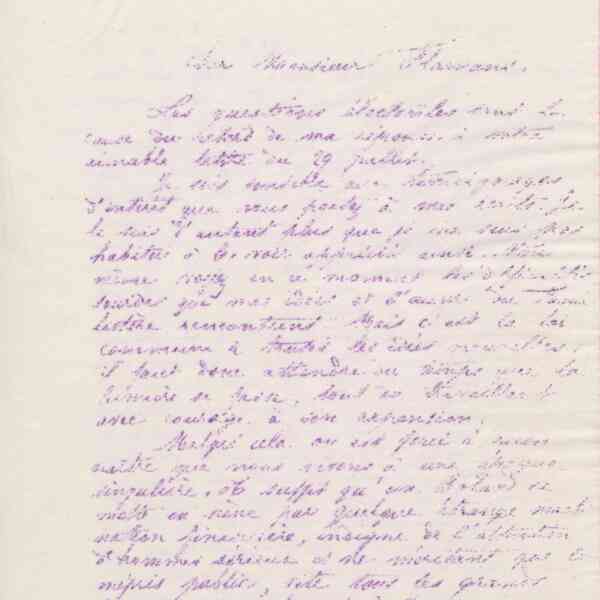 Cher Monsieur
Les questions électorales sont la
cause du retard de ma réponse à votre
aimable lettre du 29 juillet.
Je suis sensible aux témoignages
d'intérêt que vous portez à mes écrits. Je
le suis d'autant plus que je ne suis pas
habitué à les voir appréciés ainsi. Vous
même voyez en ce moment les difficultés
que mes idées et l'œuvre du
rencontrent. Mais c'est la loi
commune à toutes les idées nouvelles;
il faut donc attendre du temps que la
lumière se fasse, tout en travaillant
avec courage à son expansion.
Malgré cela on est forcé à recon
naître que nous vivons à une époque
singulière. Il suffit qu'un se
mette en scène par quelque étrange mach
nation financière, indigne de l'attention
d'hommes sérieux et ne méritant que le
mépris public, vite tous les grands